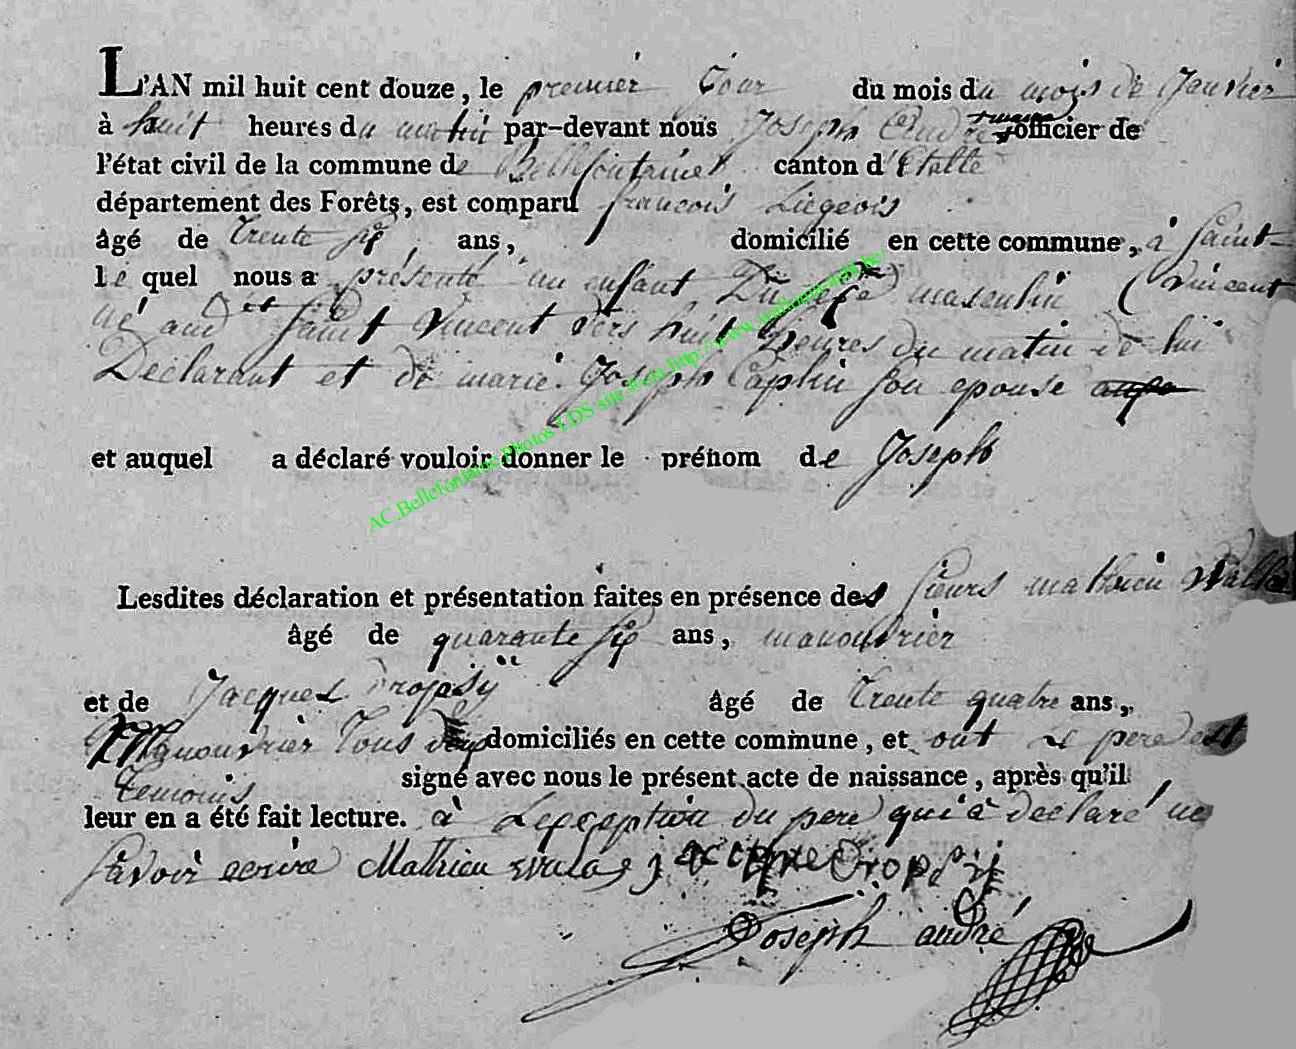 L'AN mil huit cent douze, le premier jour du mois du mois de Janvier
à huit heures du matin par-devant nous Joseph André maire officier de
l'état civil de la commune de Bellefontaine canton d'Etalle
département des Forêts, est comparu francois Liegeois
âgé de trente six ans, domicilié en cette commune, à saint-
le quel nous a présenté un enfant Du sexe masculin (vincent
né audit saint vincent vers huit heures du matin de lui
Declarant et de marie Joseph Caplin son epouse
et auquel a déclaré vouloir donner le prénom de Joseph
AC Bellefontaine Photos LDS site Icvia http://www.wallonia-anbt.be/
Lesdites déclaration et présentation faites en présence des sieurs mathieu
âgé de quarante six ans, manouvrier
et de Jacques Dropsÿ âgé de trente quatre ans,
Manouvrier tous deux domiciliés en cette commune, et ont le pere est
temoins signé avec nous le présent acte de naissance, après qu'il
leur en a été fait lecture. à Lexception du pere qui à declaré ne
savoir ecrire Mathieu jacque Dropsij
Joseph andré